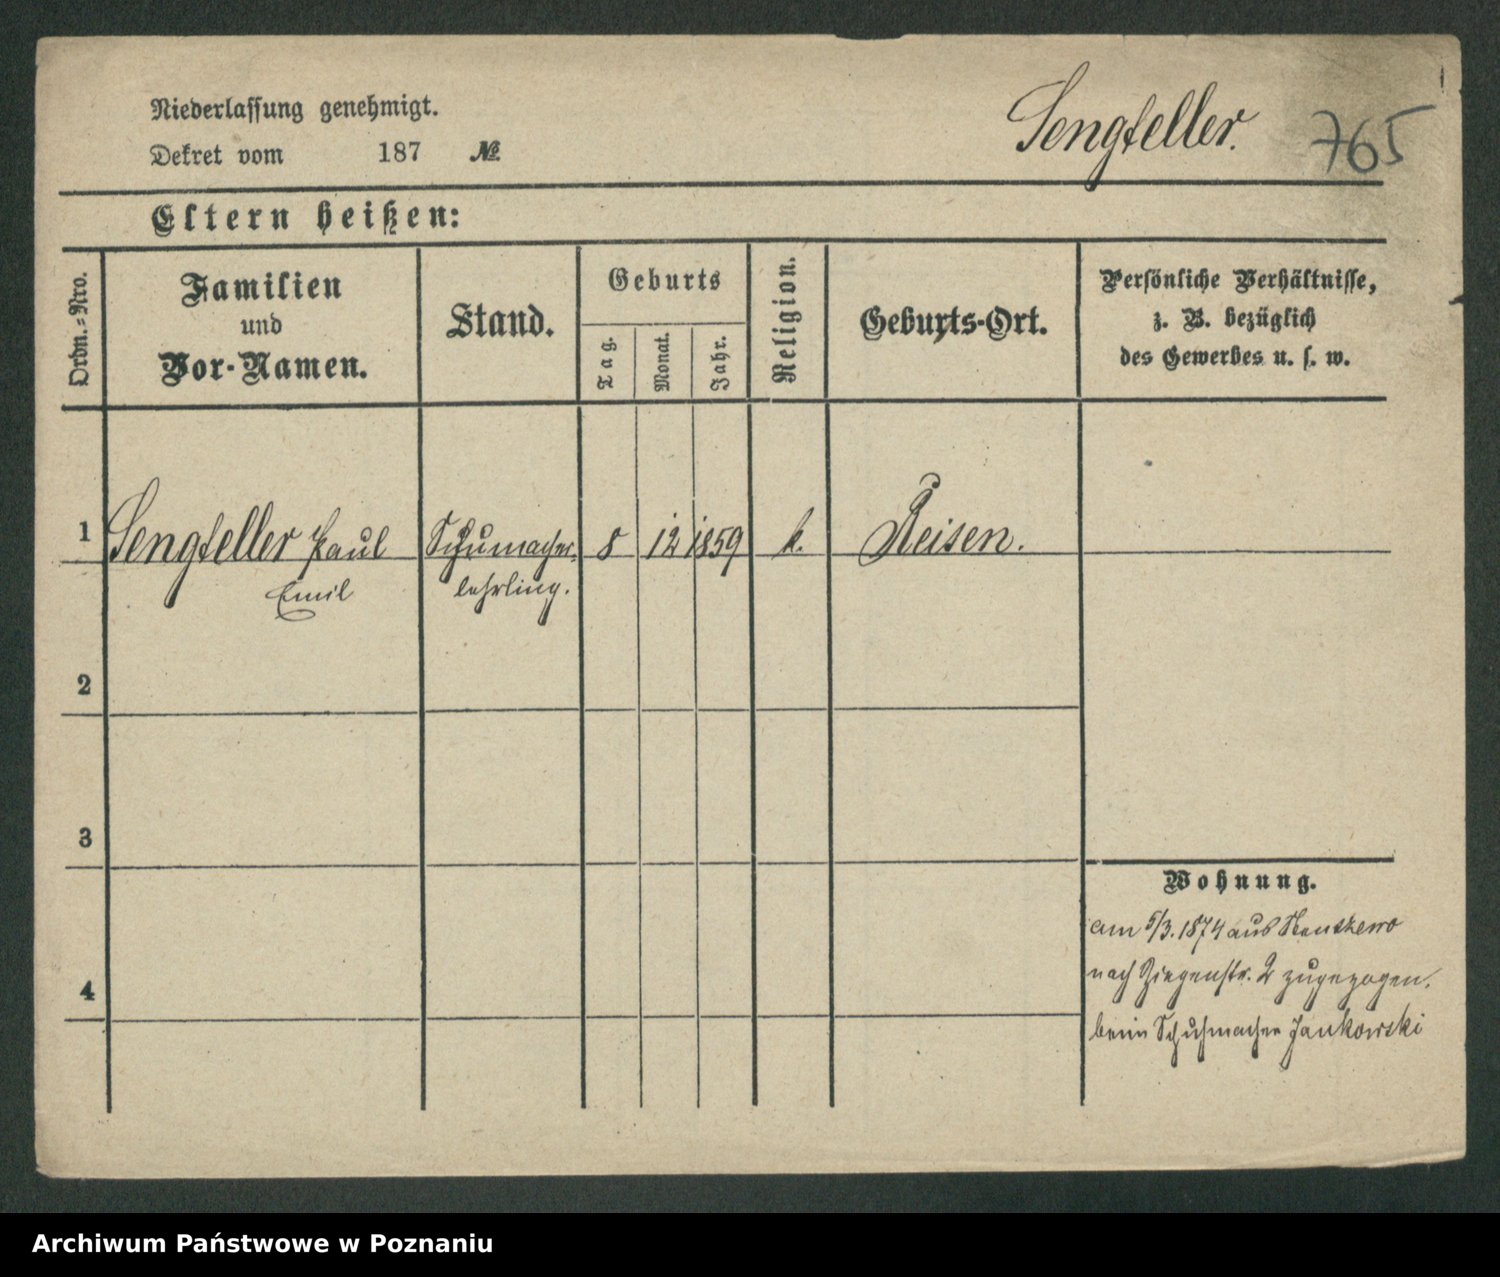 Niederlassung genehmigt.
Dekret vom 187 №
Sengteller.
765
Eltern heißen:
Ordn.=Nro.
Familien
und
Vor-Namen.
Stand.
Geburts
Tag.
Monat.
Jahr.
Religion.
Geburts-Ort.
Persönliche Verhältnisse,
z. B. bezüglich
des Gewerbes u. s. w.
1 Sengteller Paul Schumacher 8 12 1859 k. Reisen.
Emil lehrling.
2
3
4
Wohnung.
am 5/3. 1874 aus
nach Ziegenstr. 2 zugezogen.
beim Schuhmacher Jankowski
Archiwum Państwowe w Poznaniu